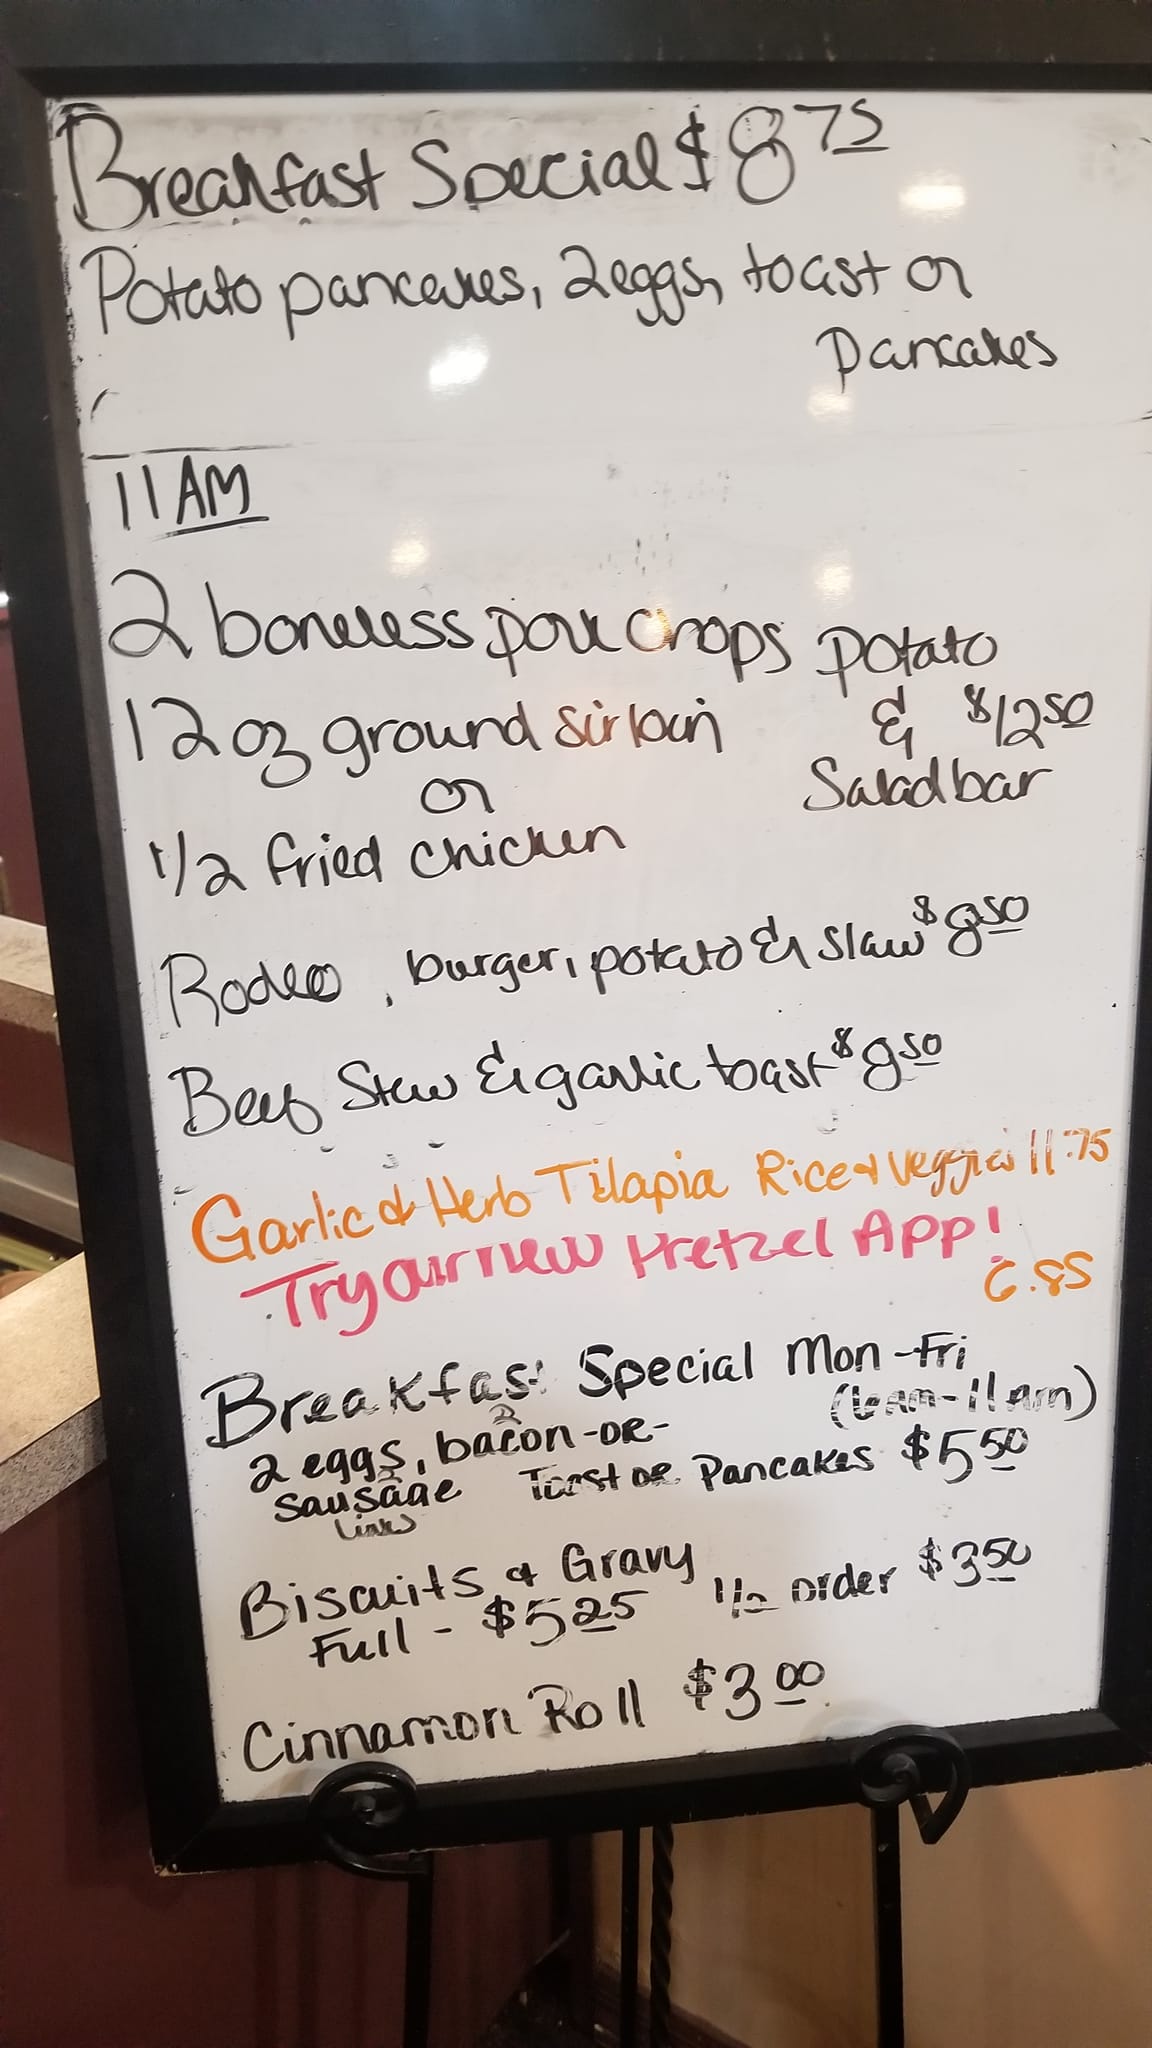 Breakfast Special $8 75
Potato pancakes, 2 eggs, toast or
Pancakes
11 AM
2 boneless pork chops potato
12 oz ground sirloin & $12 50
or Salad bar
1/2 fried chicken
Rodeo, burger, potato & slaw $8 50
Beef Stew & garlic toast $8 50
Garlic & Herb Tilapia Rice & Veggies 11.75
Try our new Pretzel App!
6.85
Breakfast Special Mon-Fri
(6am-11am)
2 eggs, 2 bacon -OR-
2 sausage Toast or Pancakes $5 50
links
Biscuits & Gravy
Full - $5 25 1/2 order $3 50
Cinnamon Roll $3 00